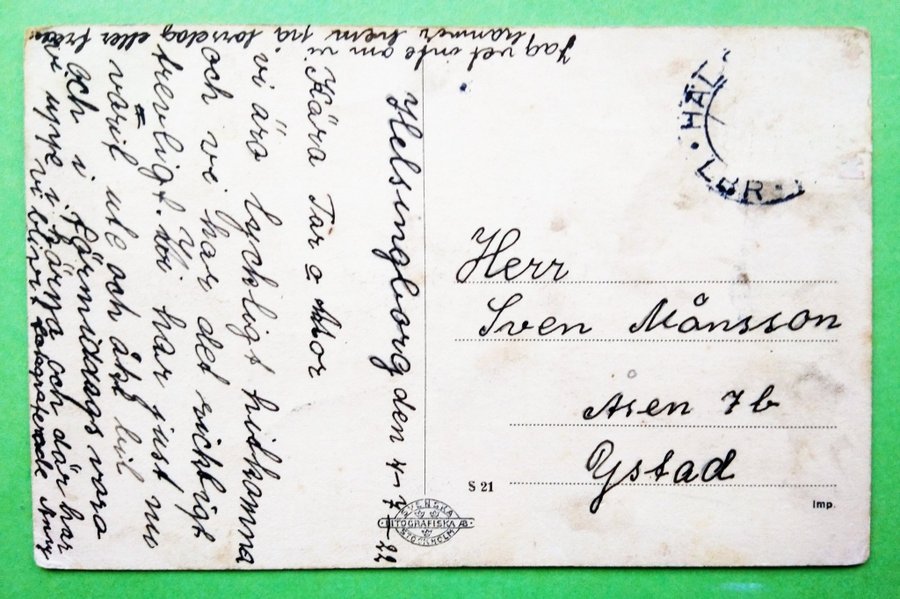 Helsingborg den 4-7-22
Kära Far o Mor
vi äro lyckligt hitkomna
och vi har det riktigt
trevligt. Vi har just nu
varit ute och åkt bil
och i förmiddags vara
vi uppe i Kärnan och där har
vi blivit fotograferade Anny
Jag vet inte om vi
kommer hem på torsdag eller fredag
HÄL
LBR
Herr
Sven Månsson
Åsen 7b
Ystad
S 21
SVENSKA
LITOGRAFISKA AB
STOCKHOLM
Imp.